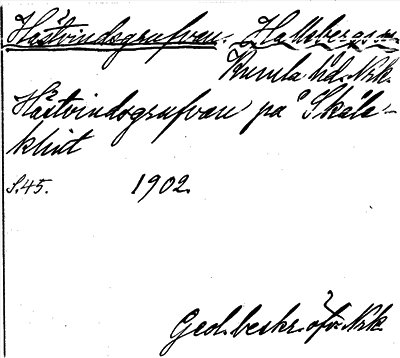 Hästvindsgrufvan. Hallsbergs sn.
Kumla hd. Nrk.
Hästvindsgrufvan på Skåla-
klint
S. 45. 1902.
Geol. beskr. öfv. Nrk.